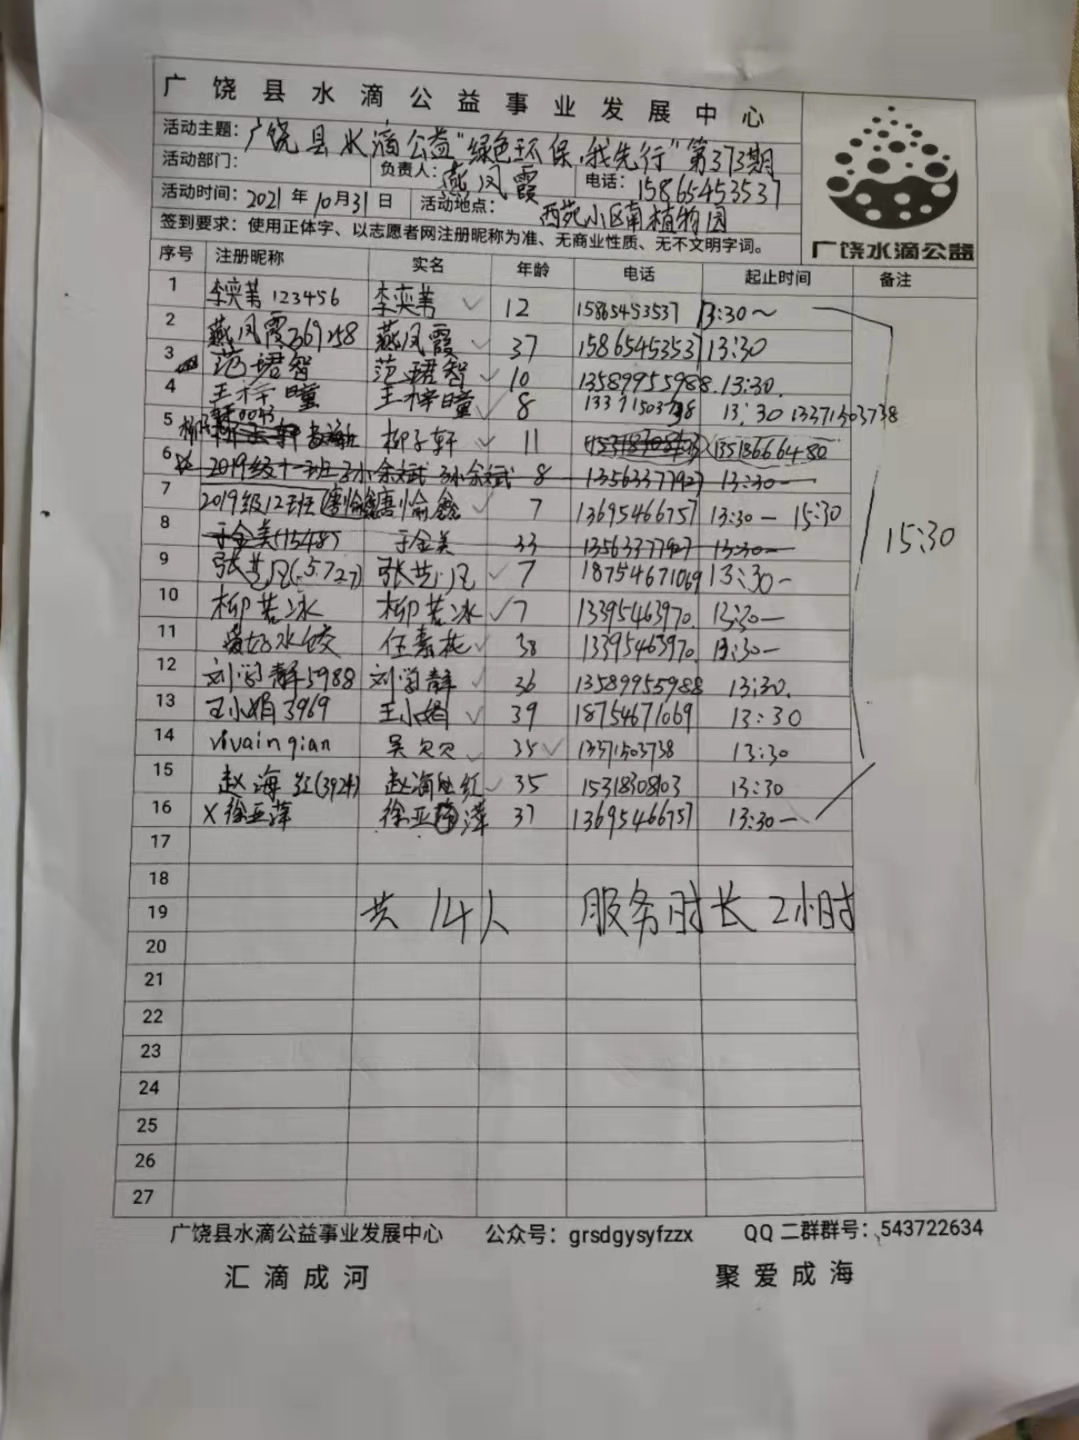 广饶县水滴公益事业发展中心
活动主题：广饶县水滴公益“绿色环保，我先行”第373期
活动部门： 负责人：燕凤霞 电话：15865453537
活动时间：2021年10月31日 活动地点：西苑小区南植物园
签到要求：使用正体字、以志愿者网注册昵称为准、无商业性质、无不文明字词。
广饶水滴公益
序号 注册昵称 实名 年龄 电话 起止时间 备注
1 李奕苇123456 李奕苇 ✓ 12 15865453537 13:30～
2 燕凤霞369258 燕凤霞 ✓ 37 15865453537 13:30
3 范珺智 范珺智 ✓ 10 13589955988 13:30
4 王梓瞳 王梓瞳 ✓ 8 13:30 13371503738
5 柳子轩 ✓ 11 13518666480
6 2019级十一班 余斌 8 13563377927 13:30—
7 2019级12班 唐愉鑫 ✓ 7 13695466757 13:30—15:30
8 于金美(1548) 于金美 33 13563377927 13:30—
15:30
9 张艺凡(5727) 张艺凡 ✓ 7 18754671069 13:30—
10 柳若冰 柳若冰 ✓ 7 13395463970 13:30—
11 爱好水饺 任素花 ✓ 38 13395463970 13:30—
12 刘学静5988 刘学静 ✓ 36 13589955988 13:30
13 王小娟3969 王小娟 ✓ 39 18754671069 13:30
14 vivainqian 吴欠欠 ✓ 35 ✓ 13371503738 13:30
15 赵海红(3924) 赵海红 ✓ 35 15318308103 13:30
16 X徐亚萍 徐亚萍 37 13695466757 13:30—
17
18
19 共14人 服务时长2小时
20
21
22
23
24
25
26
27
广饶县水滴公益事业发展中心 公众号：grsdgysyfzzx QQ二群群号：543722634
汇滴成河 聚爱成海